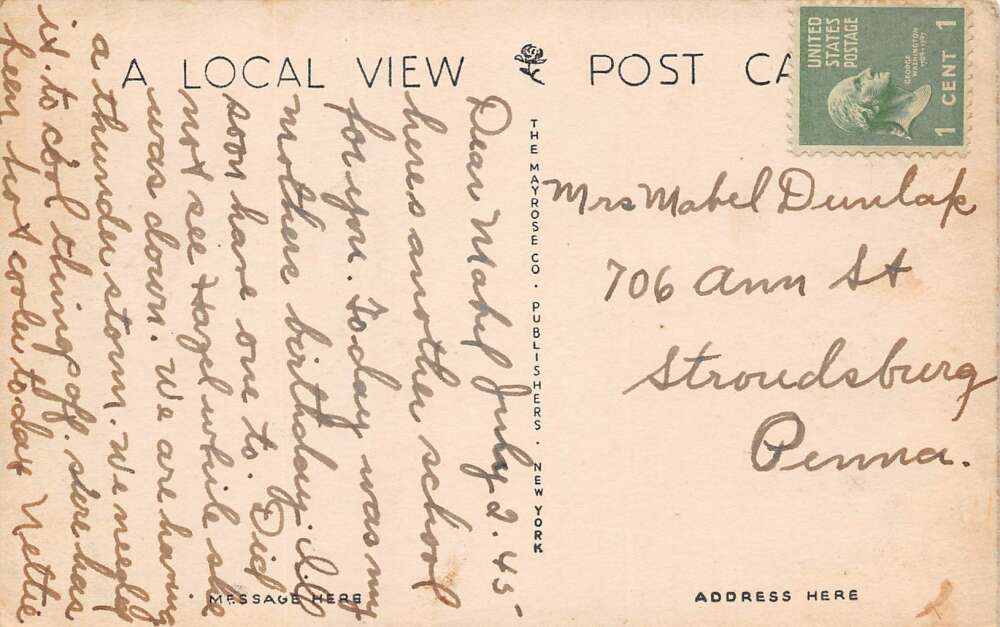 A LOCAL VIEW
POST CA
UNITED
STATES
POSTAGE
GEORGE
WASHINGTON
1 CENT 1
THE MAYROSE CO. PUBLISHERS. NEW YORK
Dear Mabel July 2. 45
heres another school
for you. Today was my
mothers birthday. Ill
soon have one to. Did
not see Hazel while she
was down. We are having
a thunder storm. We need
it. to cool things off. Its
been hot cooler today Nettie
MESSAGE HERE
Mrs Mabel Dunlap
706 Ann St
Stroudsburg
Penna.
ADDRESS HERE